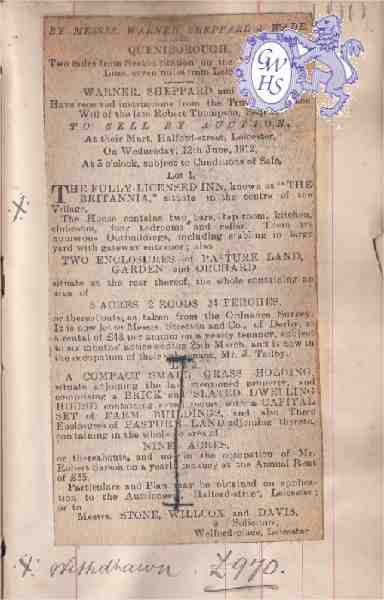 BY MESSRS. WARNER, SHEPPARD & WADE.
QUENIBOROUGH.
Two miles from
Line, seven miles from
WARNER, SHEPPARD and
Have received instructions from the
Will of the late Robert Thompson,
TO SELL BY AUCTION,
At their Mart, Halford-street, Leicester,
On Wednesday, 12th June, 1912,
At 5 o'clock, subject to Conditions of Sale,
Lot 1.
THE FULLY-LICENSED INN, known as "THE
BRITANNIA," situate in the centre of the
Village.
The House contains two bars, tap room, kitchen,
four bedrooms and cellar. There are
numerous Outbuildings, including stabling in large
yard with gateway entrance; also
TWO ENCLOSURES of PASTURE LAND,
GARDEN and ORCHARD
situate at the rear thereof, the whole containing an
area of
5 ACRES 2 ROODS 34 PERCHES,
or thereabouts, as taken from the Ordnance Survey.
It is now let to Messrs. Stretton and Co., of Derby, at
a rental of £48 per annum on a yearly tenancy, subject
to six months' notice ending 25th March, and is now in
the occupation of their Mr. J. Tailby.
A COMPACT SMALL GRASS HOLDING,
situate adjoining the last mentioned property, and
comprising a BRICK and SLATED DWELLING
HOUSE containing with a CAPITAL
SET of FARM BUILDINGS, and also Three
Enclosures of PASTURE LAND adjoining thereto,
containing in the whole an area of
NINE ACRES,
or thereabouts, and now in the occupation of Mr.
Robert on a yearly tenancy at the Annual Rent
of £35.
Particulars and Plan may be obtained on applica-
tion to the Auctioneers, Halford-street, Leicester;
or to
Messrs. STONE, WILLCOX and DAVIS,
Solicitors,
Welford-place, Leicester.
GW
HS
X
X Withdrawn £970.